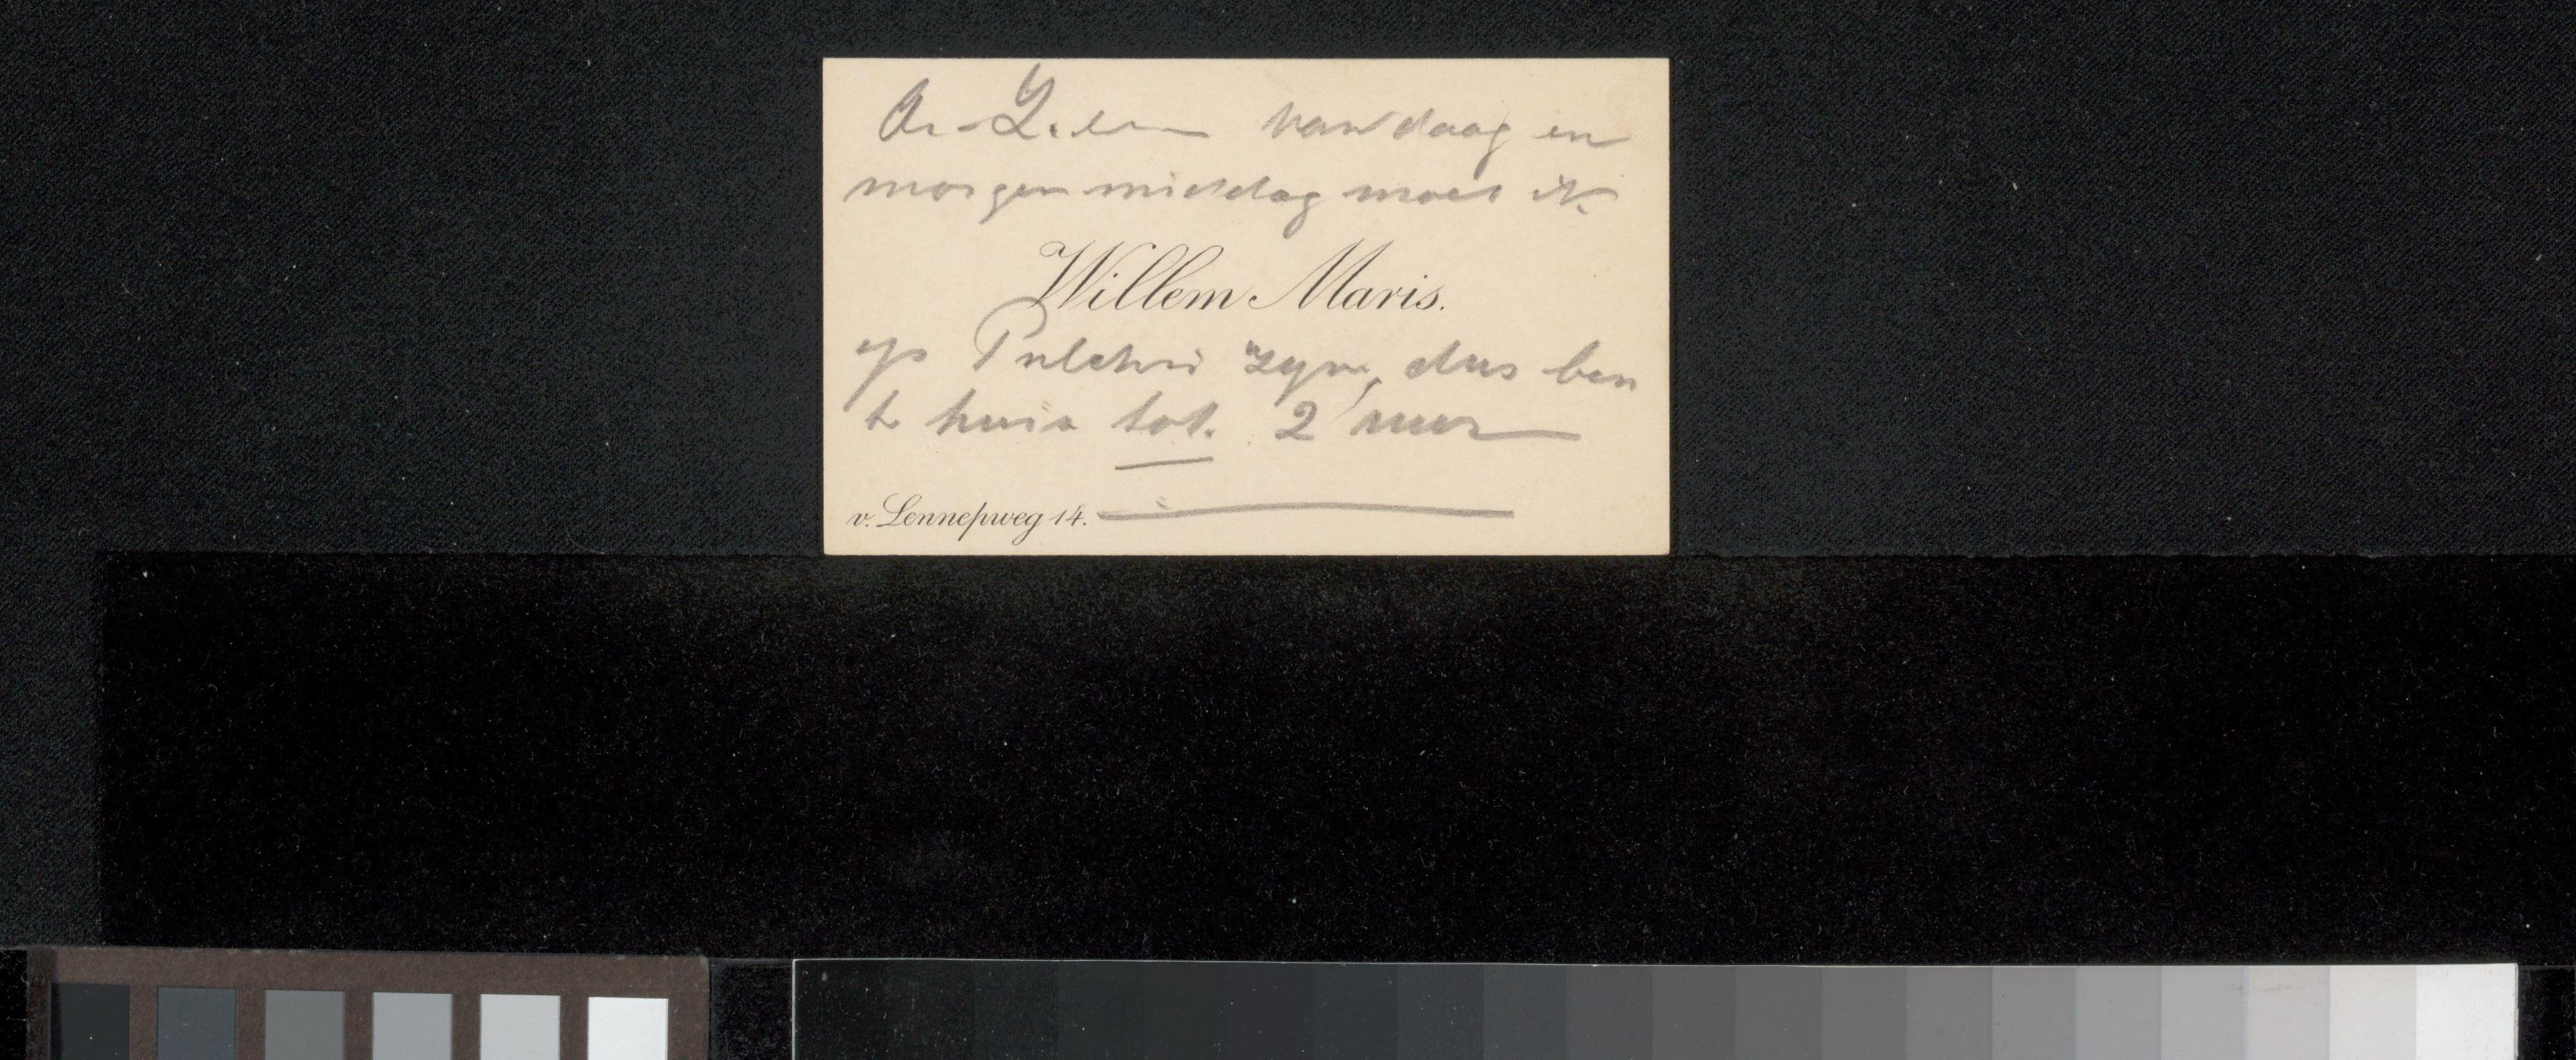 vandaag en
morgen middag moet ik
Willem Maris.
op Pulchri zyn, dus ben
te huis tot. 2 uur
v. Lennepweg 14.